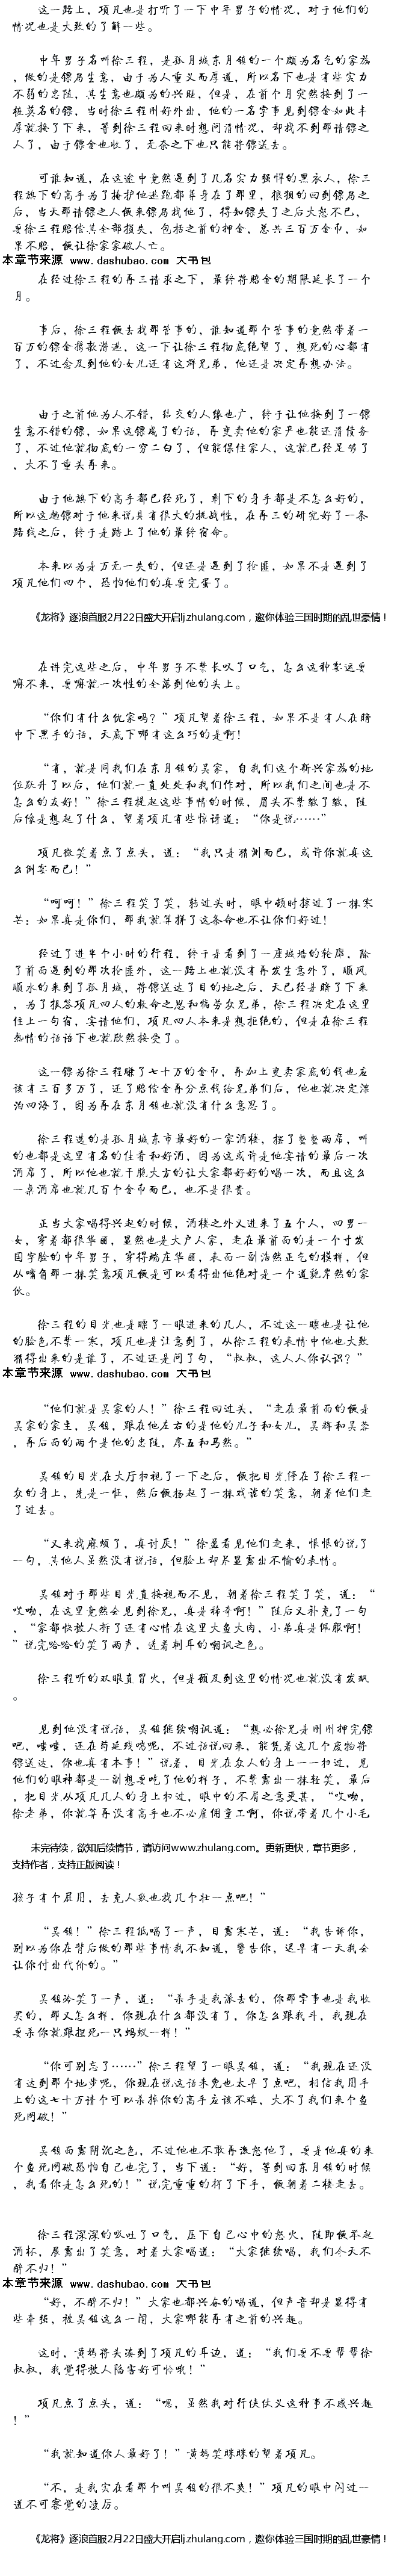 这一路上，项凡也是打听了一下中年男子的情况，对于他们的
情况也是大致的了解一些。
中年男子名叫徐三程，是孤月城东月镇的一个颇为名气的家族
，做的是镖局生意，由于为人重义而厚道，所以名下也是有些实力
不弱的忠陵，其生意也颇为的兴旺，但是，在前个月突然接到了一
桩莫名的镖，当时徐三程刚好外出，他的一名掌事见到镖金如此丰
厚就接了下来，等到徐三程回来时想问清情况，却找不到那请镖之
人了，由于镖金也收了，无奈之下也只能将镖送去。
可谁知道，在这途中竟然遇到了几名实力强悍的黑衣人，徐三
程旗下的高手为了掩护他逃跑都葬身在了那里，狼狈的回到镖局之
后，当天那请镖之人便来镖局找他了，得知镖失了之后大怒不已，
要徐三程赔偿其全部损失，包括之前的押金，总共三百万金币，如
果不赔，便让徐家家破人亡。
本章节来源 www.dashubao.com 大书包
在经过徐三程的再三请求之下，最终将赔金的期限延长了一个
月。
事后，徐三程便去找那管事的，谁知道那个管事的竟然带着一
百万的镖金携款潜逃，这一下让徐三程彻底绝望了，想死的心都有
了，不过念及到他的女儿还有这群兄弟，他还是决定再想办法。
由于之前他为人不错，结交的人缘也广，终于让他接到了一镖
生意不错的镖，如果这镖成了的话，再变卖他的家产也能还清债务
了，不过他就彻底的一穷二白了，但能保住家人，这就已经足够了
，大不了重头再来。
由于他旗下的高手都已经死了，剩下的身手都是不怎么好的，
所以这趟镖对于他来说具有很大的挑战性，在再三的研究好了一条
路线之后，终于是踏上了他的最终宿命。
本来以为是万无一失的，但还是遇到了抢匪，如果不是遇到了
项凡他们四个，恐怕他们的真要完蛋了。
《龙将》逐浪首服2月22日盛大开启lj.zhulang.com，邀你体验三国时期的乱世豪情！
在讲完这些之后，中年男子不禁长叹了口气，怎么这种霉运要
嘛不来，要嘛就一次性的全落到他的头上。
“你们有什么仇家吗？”项凡望着徐三程，如果不是有人在暗
中下黑手的话，天底下哪有这么巧的是啊！
“有，就是同我们在东月镇的吴家，自我们这个新兴家族的地
位跃升了以后，他们就一直处处和我们作对，所以我们之间也是不
怎么的友好！”徐三程提起这些事情的时候，眉头不禁皱了皱，随
后像是想起了什么，望着项凡有些惊讶道：“你是说……”
项凡微笑着点了点头，道：“我只是猜测而已，或许你就真这
么倒霉而已！”
“呵呵！”徐三程笑了笑，转过头时，眼中顿时掠过了一抹寒
芒：如果真是你们，那我就算拼了这条命也不让你们好过！
经过了近半个小时的行程，终于是看到了一座城墙的轮廓，除
了前面遇到的那次抢匪外，这一路上也就没有再发生意外了，顺风
顺水的来到了孤月城，将镖送达了目的地之后，天已经是暗了下来
，为了报答项凡四人的救命之恩和犒劳众兄弟，徐三程决定在这里
住上一句宿，宴请他们，项凡四人本来是想拒绝的，但是在徐三程
热情的话语下也就欣然接受了。
这一镖为徐三程赚了七十万的金币，再加上变卖家底的钱也应
该有三百多万了，还了赔偿金再分点钱给兄弟们后，他也就决定漂
泊四海了，因为再在东月镇也就没有什么意思了。
徐三程选的是孤月城东市最好的一家酒楼，摆了整整两席，叫
的也都是这里有名的佳肴和好酒，因为这或许是他宴请的最后一次
酒席了，所以他也就干脆大方的让大家都好好的喝一次，而且这么
一桌酒席也就几百个金币而已，也不是很贵。
正当大家喝得兴起的时候，酒楼之外又进来了五个人，四男一
女，穿着都很华丽，显然也是大户人家，走在最前面的是一个寸发
国字脸的中年男子，穿得端庄华丽，表面一副浩然正气的模样，但
从嘴角那一抹笑意项凡便是可以看得出他绝对是一个道貌岸然的家
伙。
徐三程的目光也是瞟了一眼进来的几人，不过这一瞟也是让他
的脸色不禁一寒，项凡也是注意到了，从徐三程的表情中他也大致
猜得出来的是谁了，不过还是问了句，“叔叔，这人人你认识？”
本章节来源 www.dashubao.com 大书包
“他们就是吴家的人！”徐三程回过头，“走在最前面的便是
吴家的家主，吴镇，跟在他左右的是他的儿子和女儿，吴辉和吴蓉
，再后面的两个是他的忠陵，廖五和马然。”
吴镇的目光在大厅扫视了一下之后，便把目光停在了徐三程一
众的身上，先是一怔，然后便扬起了一抹戏谑的笑意，朝着他们走
了过去。
“又来找麻烦了，真讨厌！”徐盈看见他们走来，恨恨的说了
一句，其他人虽然没有说话，但脸上却尽显露出不愉的表情。
吴镇对于那些目光直接视而不见，朝着徐三程笑了笑，道：“
哎呦，在这里竟然会见到徐兄，真是稀奇啊！”随后又补充了一句
，“家都快被人拆了还有心情在这里大鱼大肉，小弟真是佩服啊！
”说完哈哈的笑了两声，透着刺耳的嘲讽之色。
徐三程听的双眼直冒火，但是顾及到这里的情况也就没有发飙
。
见到他没有说话，吴镇继续嘲讽道：“想必徐兄是刚刚押完镖
吧，啧啧，还在苟延残喘呢，不过话说回来，能凭着这几个废物将
镖送达，你也真有本事！”说着，目光在众人的身上一一扫过，见
他们的眼神都是一副想要吃了他的样子，不禁露出一抹轻笑，最后
，把目光从项凡几人的身上扫过，眼中的不屑之意更甚，“哎呦，
徐老弟，你就算再没有高手也不必雇佣童工啊，你说带着几个小毛
未完待续，欲知后续情节，请访问www.zhulang.com。更新更快，章节更多，
支持作者，支持正版阅读！
孩子有个屁用，去充人数也找几个壮一点吧！”
“吴镇！”徐三程低喝了一声，目露寒芒，道：“我告诉你，
别以为你在背后做的那些事情我不知道，警告你，迟早有一天我会
让你付出代价的。”
吴镇冷笑了一声，道：“杀手是我派去的，你那掌事也是我收
买的，那又怎么样，你现在什么都没有了，你怎么跟我斗，我现在
要杀你就跟捏死一只蚂蚁一样！”
“你可别忘了……”徐三程望了一眼吴镇，道：“我现在还没
有达到那个地步呢，你现在说这话未免也太早了点吧，相信我用手
上的这七十万请个可以杀掉你的高手应该不难，大不了我们来个鱼
死网破！”
吴镇面露阴沉之色，不过他也不敢再激怒他了，要是他真的来
个鱼死网破恐怕自己也完了，当下道：“好，等到回东月镇的时候
，我看你是怎么死的！”说完重重的挥了下手，便朝着二楼走去。
徐三程深深的吸吐了口气，压下自己心中的怒火，随即便举起
酒杯，展露出了笑意，对着大家喝道：“大家继续喝，我们今天不
醉不归！”
本章节来源 www.dashubao.com 大书包
“好，不醉不归！”大家也都兴奋的喝道，但声音却是显得有
些牵强，被吴镇这么一闹，大家哪能再有之前的兴趣。
这时，黄嫣将头凑到了项凡的耳边，道：“我们要不要帮帮徐
叔叔，我觉得被人陷害好可怜哦！”
项凡点了点头，道：“嗯，虽然我对行侠仗义这种事不感兴趣
！”
“我就知道你人最好了！”黄嫣笑眯眯的望着项凡。
“不，是我实在看那个叫吴镇的很不爽！”项凡的眼中闪过一
道不可察觉的凌厉。
《龙将》逐浪首服2月22日盛大开启lj.zhulang.com，邀你体验三国时期的乱世豪情！